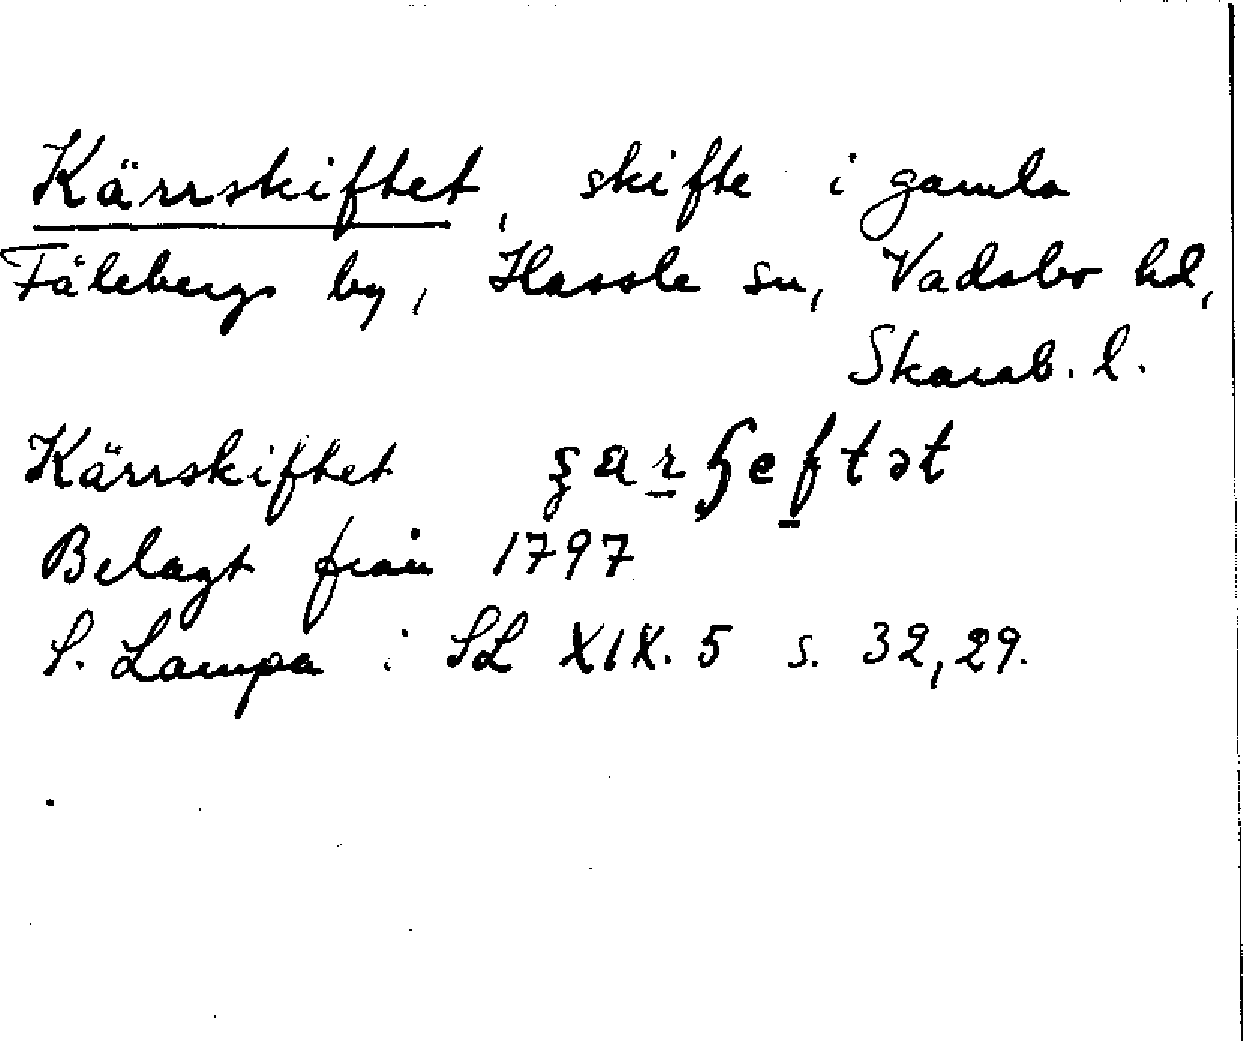 Kärrskiftet, skifte i gamla
Fålebergs by, Hassle sn, Vadsbo hd,
Skarab. l.
Kärrskiftet
Belagt från 1797
S. Lampa i SL XIX. 5 s. 32, 29.